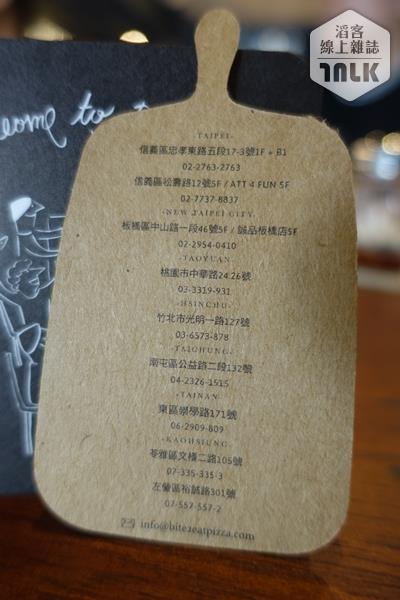 滔客
線上雜誌
TALK
come to
-TAIPEI-
信義區忠孝東路五段17-3號1F + B1
02-2763-2763
信義區松壽路12號5F / ATT 4 FUN 5F
02-7737-8837
-NEW TAIPEI CITY-
板橋區中山路一段46號5F / 誠品板橋店5F
02-2954-0410
-TAOYUAN-
桃園市中華路24.26號
03-3319-931
-HSINCHU-
竹北市光明一路127號
03-6573-878
-TAICHUNG-
南屯區公益路二段132號
04-2326-1515
-TAINAN-
東區崇學路171號
06-2909-809
-KAOHSIUNG-
苓雅區文橫二路105號
07-335-335-3
左營區裕誠路301號
07-557-557-2
info@bite2eatpizza.com